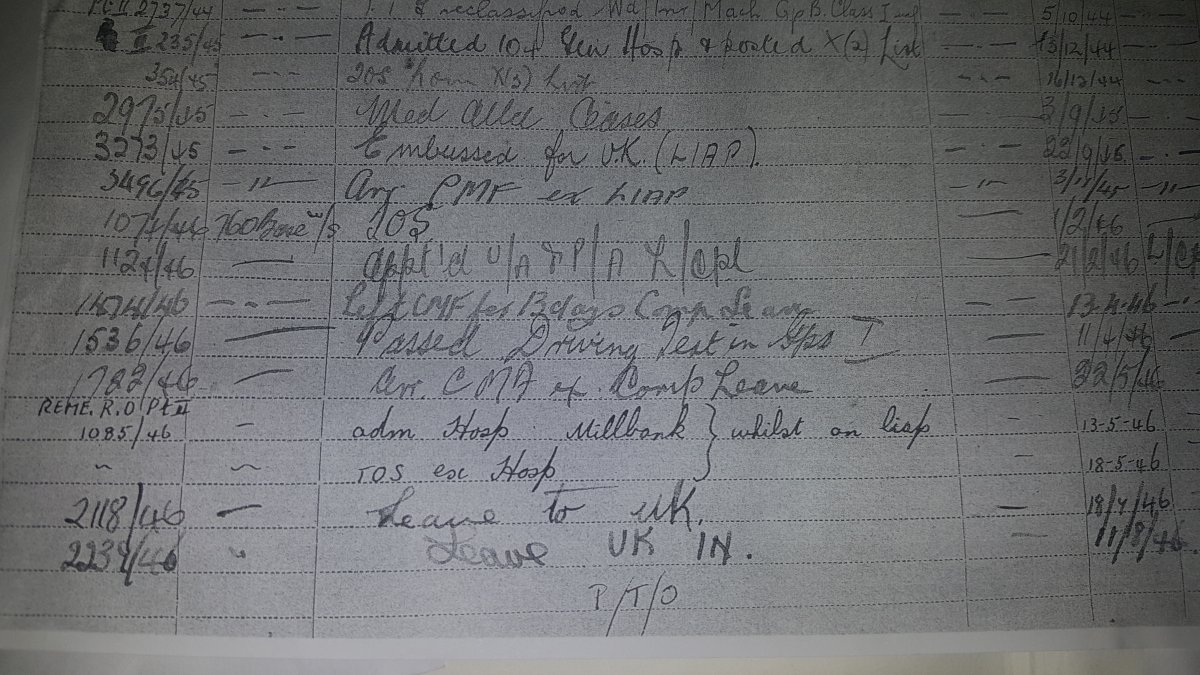 Pt II 2737/44 — · — & reclassified Mach Gp B. Class I — · — 5/10/44 — · —
II 235/45 — · — Admitted 104 Gen Hosp & posted X(2) List — · — 13/12/44 — · —
354/45 - - - TOS from X(3) List - - - 16/12/44 - - -
2975/45 — · — Med 3/9/45 — · —
3273/45 — · — Embussed for U.K. (LIAP). — · — 22/9/45 — · —
3496/45 — " — Arr CMF ex LIAP — " — /45 — " —
107 /46 760 Base W/S TOS — 1/2/46 —
1124/46 — appt'd U/A & P/A L/Cpl — 21/2/46 L/Cpl
/46 — · — Left CMF for 13 days Comp Leave — — 13-4-46 — · —
1536/46 — Passed Driving Test in Gps I — 11/4/46 —
1782/46 — Arr. CMF ex. Comp Leave — 22/5/46 —
REME. R.O Pt II
1085/46 — adm Hosp Millbank } whilst on liap - 13-5-46
~ ~ TOS exc Hosp - 18-5-46
2118/46 — Leave to UK. — 18/7/46
2239/46 " Leave UK IN. — 11/8/46
P/T/O